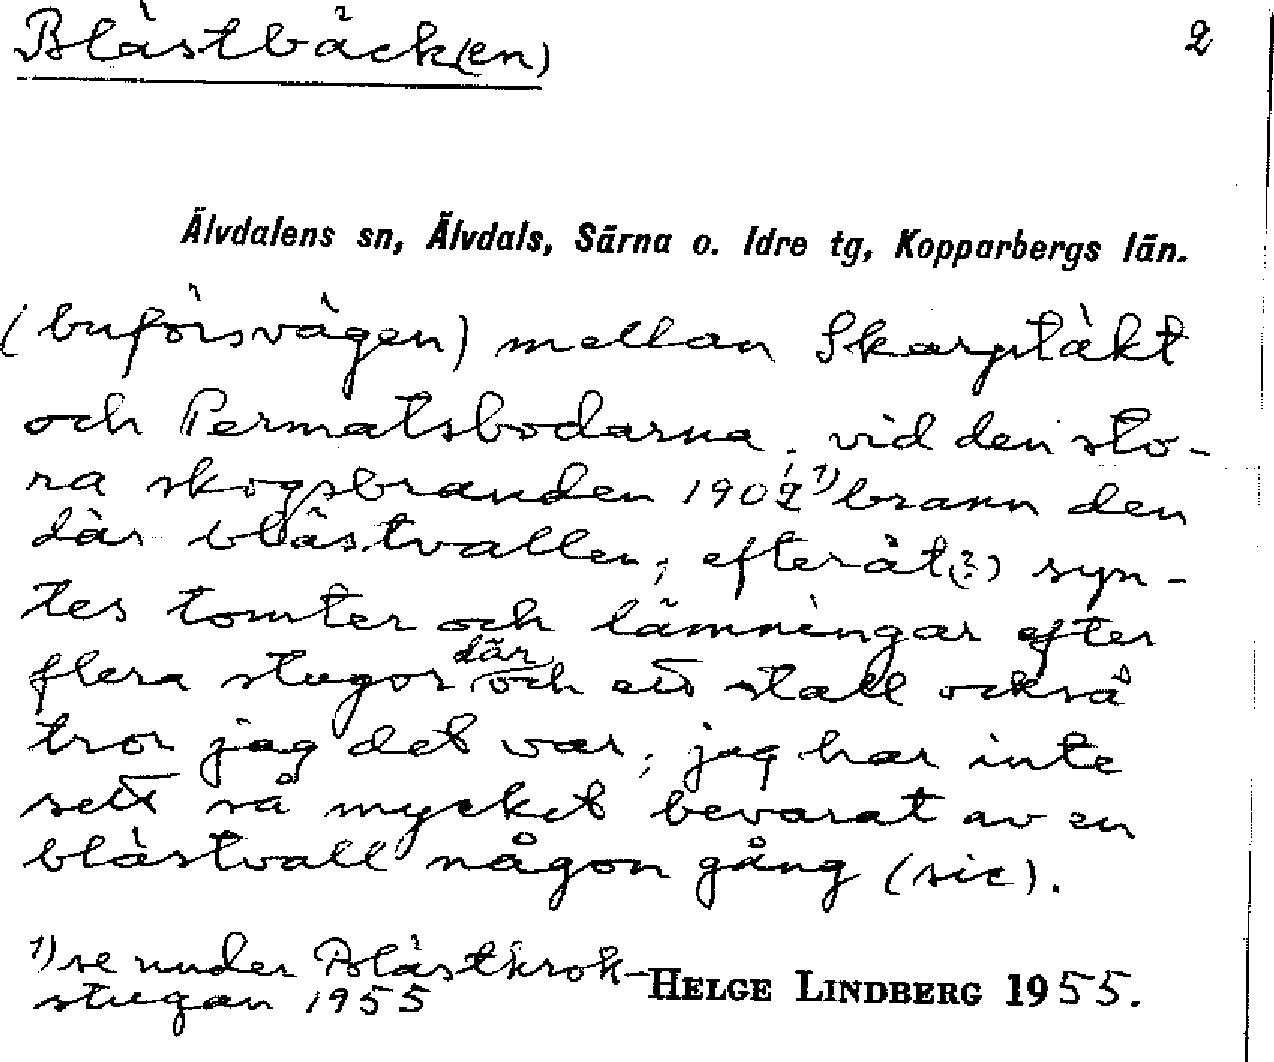 Blästbäck(en)
2
Älvdalens sn, Älvdals, Särna o. Idre tg, Kopparbergs län.
(buförsvägen) mellan Skarptäkt
och Permatsbodarna. vid den sto-
ra skogsbranden 1902 1) brann den
där blästvallen, efteråt(?) syn-
tes tomter och lämningar efter
flera stugor där och ett stall också
tror jag det var, jag har inte
sett så mycket bevarat av en
blästvall någon gång (sic).
1) se under Blästkrok-
stugan 1955
HELGE LINDBERG 1955.